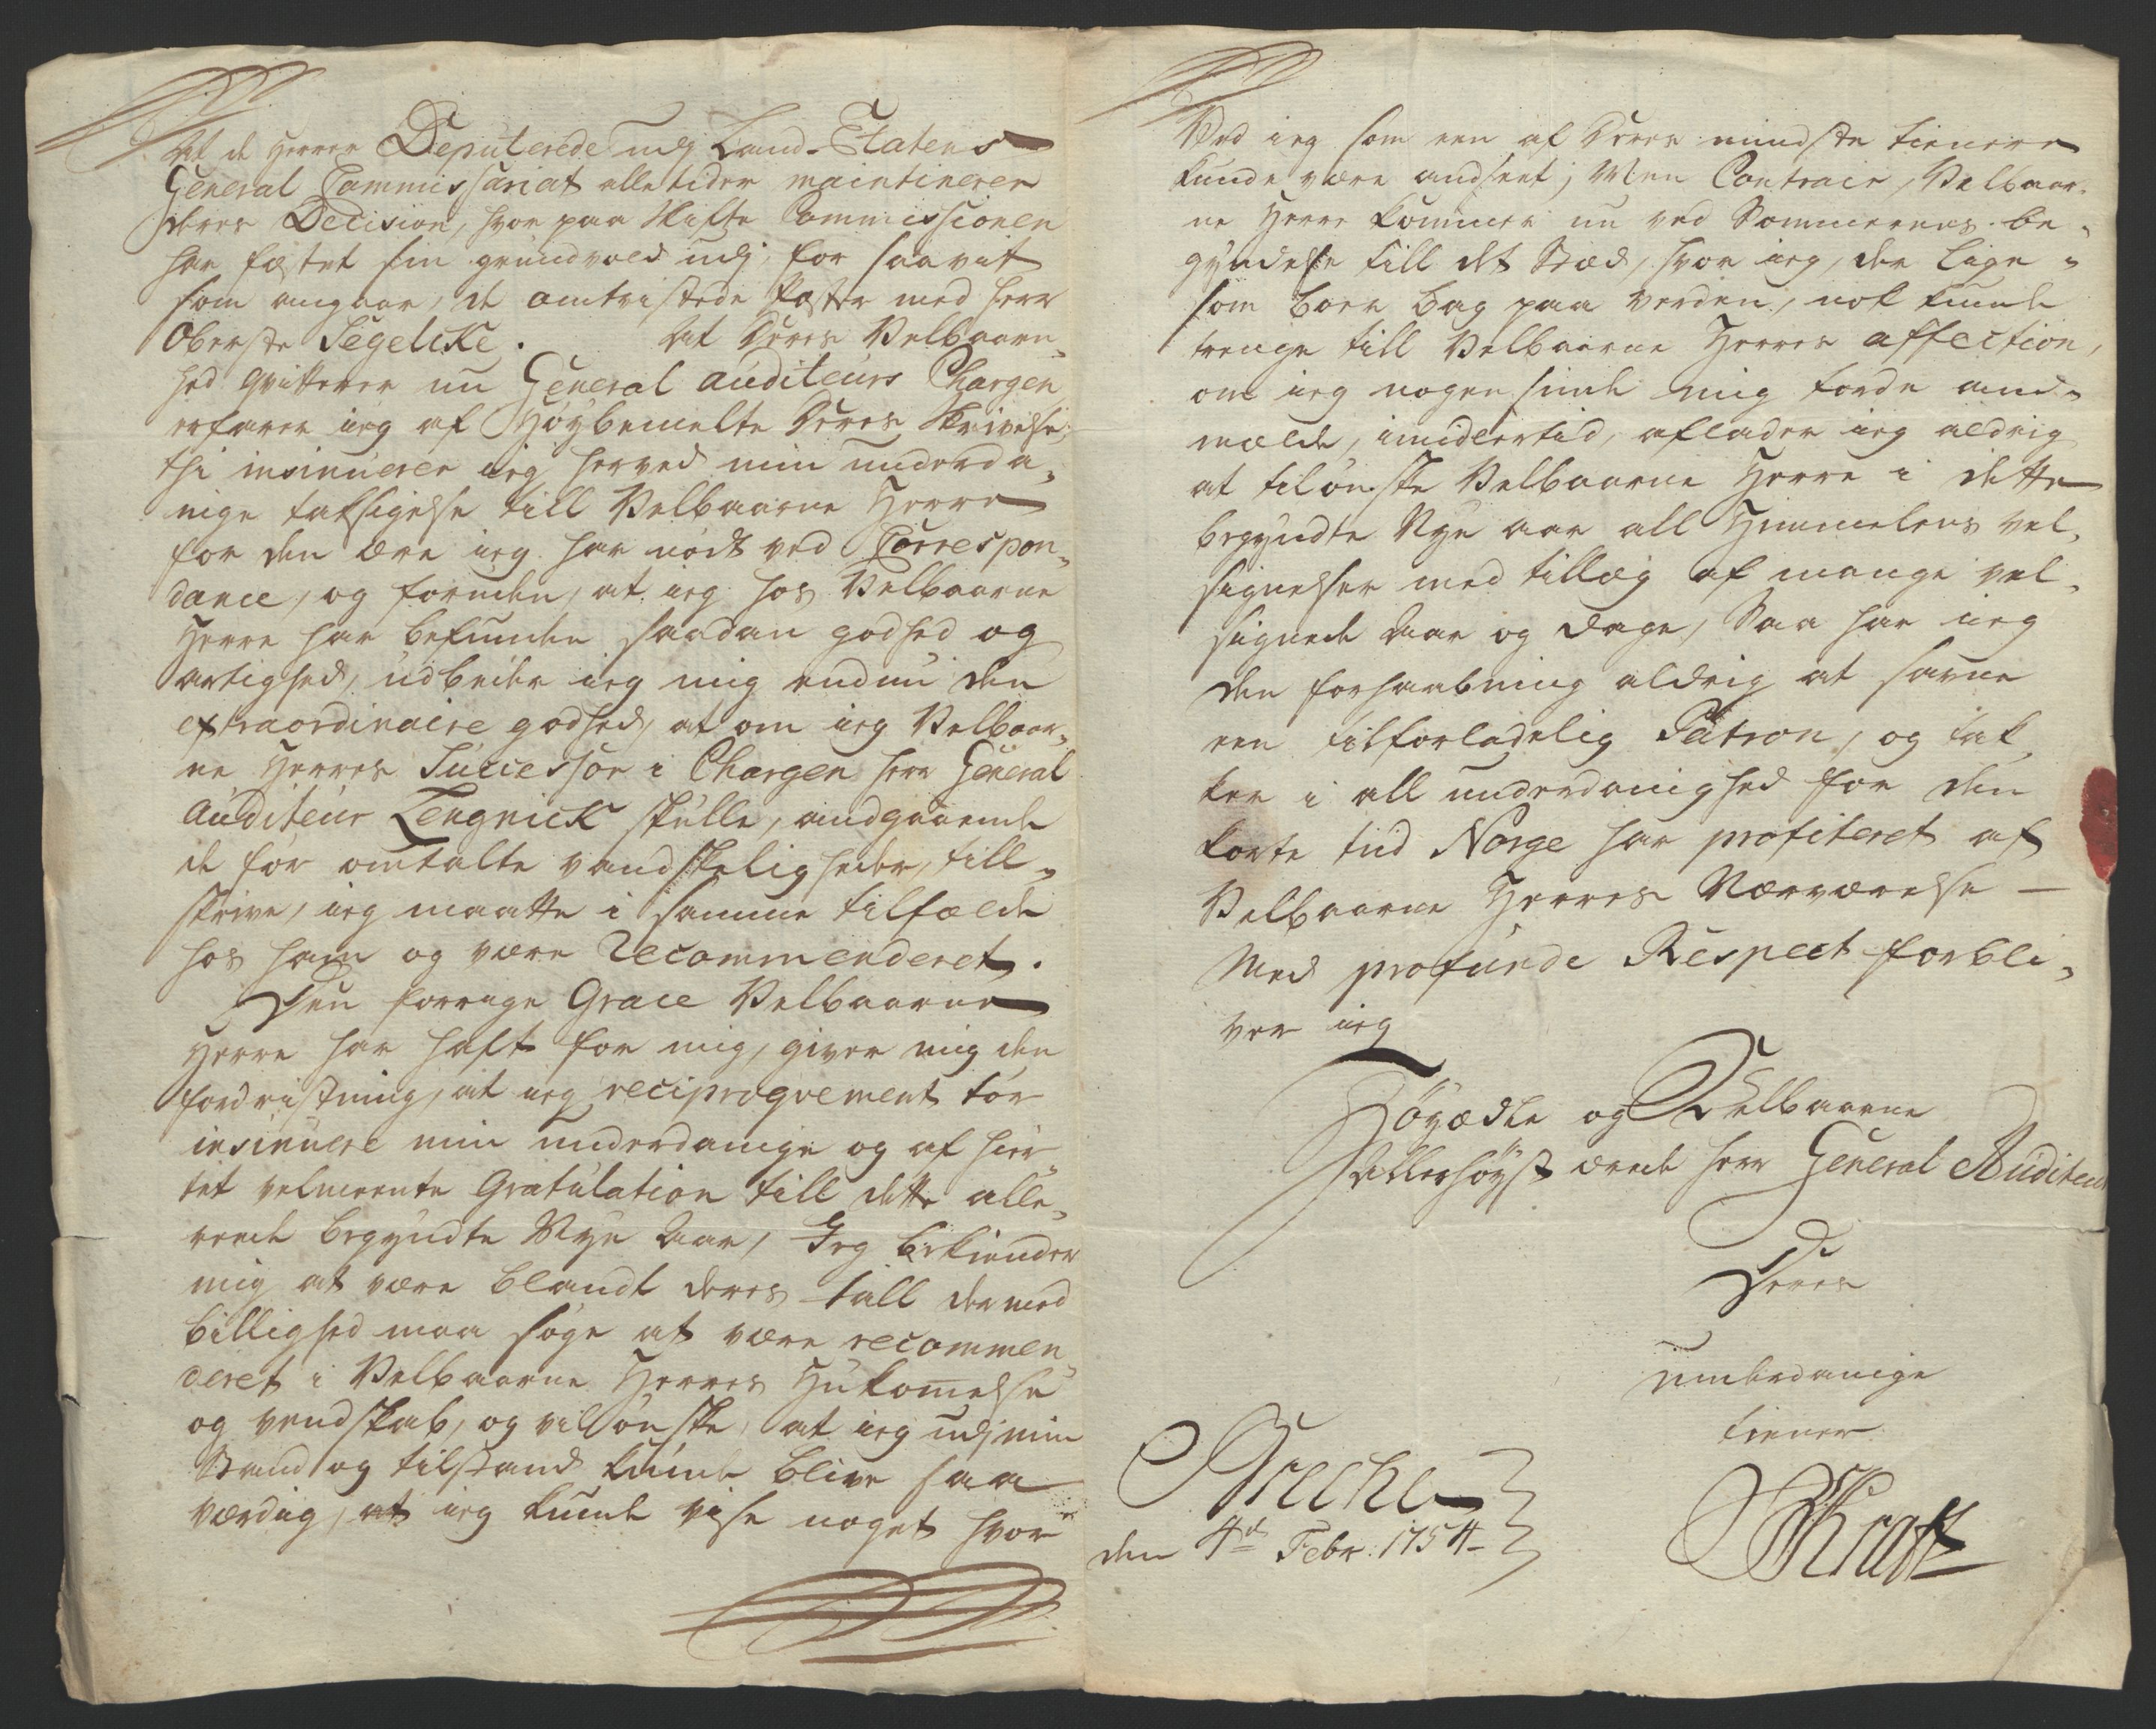 At de Herrer Deputerede udj Land-Etatens
General Commissariat alletider maintinerer
deres Decision, hvor paa Skifte Commissionen
har fæstet sin grundvold udj, for saavit
som angaar, de omtvistede Poster med Herr
Oberste Segelcke. At Deres Velbaarn-
hed qvitterer nu General Auditeurs Chargen
erfarer ieg af Høybemelte Deres Skrivelse,
thi insinuerer ieg herved min underda-
nige taksigelse till Velbaarne Herre
for den ære ieg har nødt ved Correspon-
dance, og foruden, at ieg hos Velbaarne
Herre har befunden saadan godhed og
artighed, udbeder ieg mig endnu den
extraordinaire godhed, at om ieg Velbaar-
ne Herres Successor i Chargen Herr General
Auditeur Lengnick skulle, andgaaende
de før omtalte vandskeligheder, till-
skrive, ieg maatte i samme tilfælde
hos ham og være recommenderet.
Den forrige Grace Velbaarne
Herre har haft for mig, giver mig den
fordristning, at ieg reciproqvement tør
insinuere min underdanige og af hier-
tet velmeente Gratulation till dette alle-
rede begyndte Nye Aar, Jeg bekiender
mig at være blandt deres tall der med
billighed maa søge at være recommen-
deret i Velbaarne Herres Hukommelse
og vendskab, og vil ønske, at ieg udj min
Stand og tilstand kunde blive saa
værdig, at ieg kunde vise noget hvor
Ved ieg som een af Deres mindste tienere
kunde være andseet; Men Contrair, Velbaar-
ne Herre kommer nu ved Sommerens be-
gyndelse till det Stæd, hvor ieg, der lige-
som boer bag paa verden, nok kunde
trenge till Velbaarne Herres affection,
om ieg nogensinde mig torde an-
melde, imidlertid, aflader ieg aldrig
at tilønske Velbaarne Herre i dette
begyndte Nye aar all Himmelens vel-
signelser med tillæg af mange vel-
signede Aar og Dage, Saa har ieg
den forhaabning aldrig at savne
een tilforladelig Patron, og tak-
ker i all underdanighed for den
korte tid Norge har profiteret af
Velbaarne Herres Nærværelse —
Med profunde Respect forbli-
ver ieg
Høyædle og Velbaarne
Allerhøyst ærede Herr General Auditeur
Deres
underdanige
tiener
den 4de Febr: 1754
Krafft